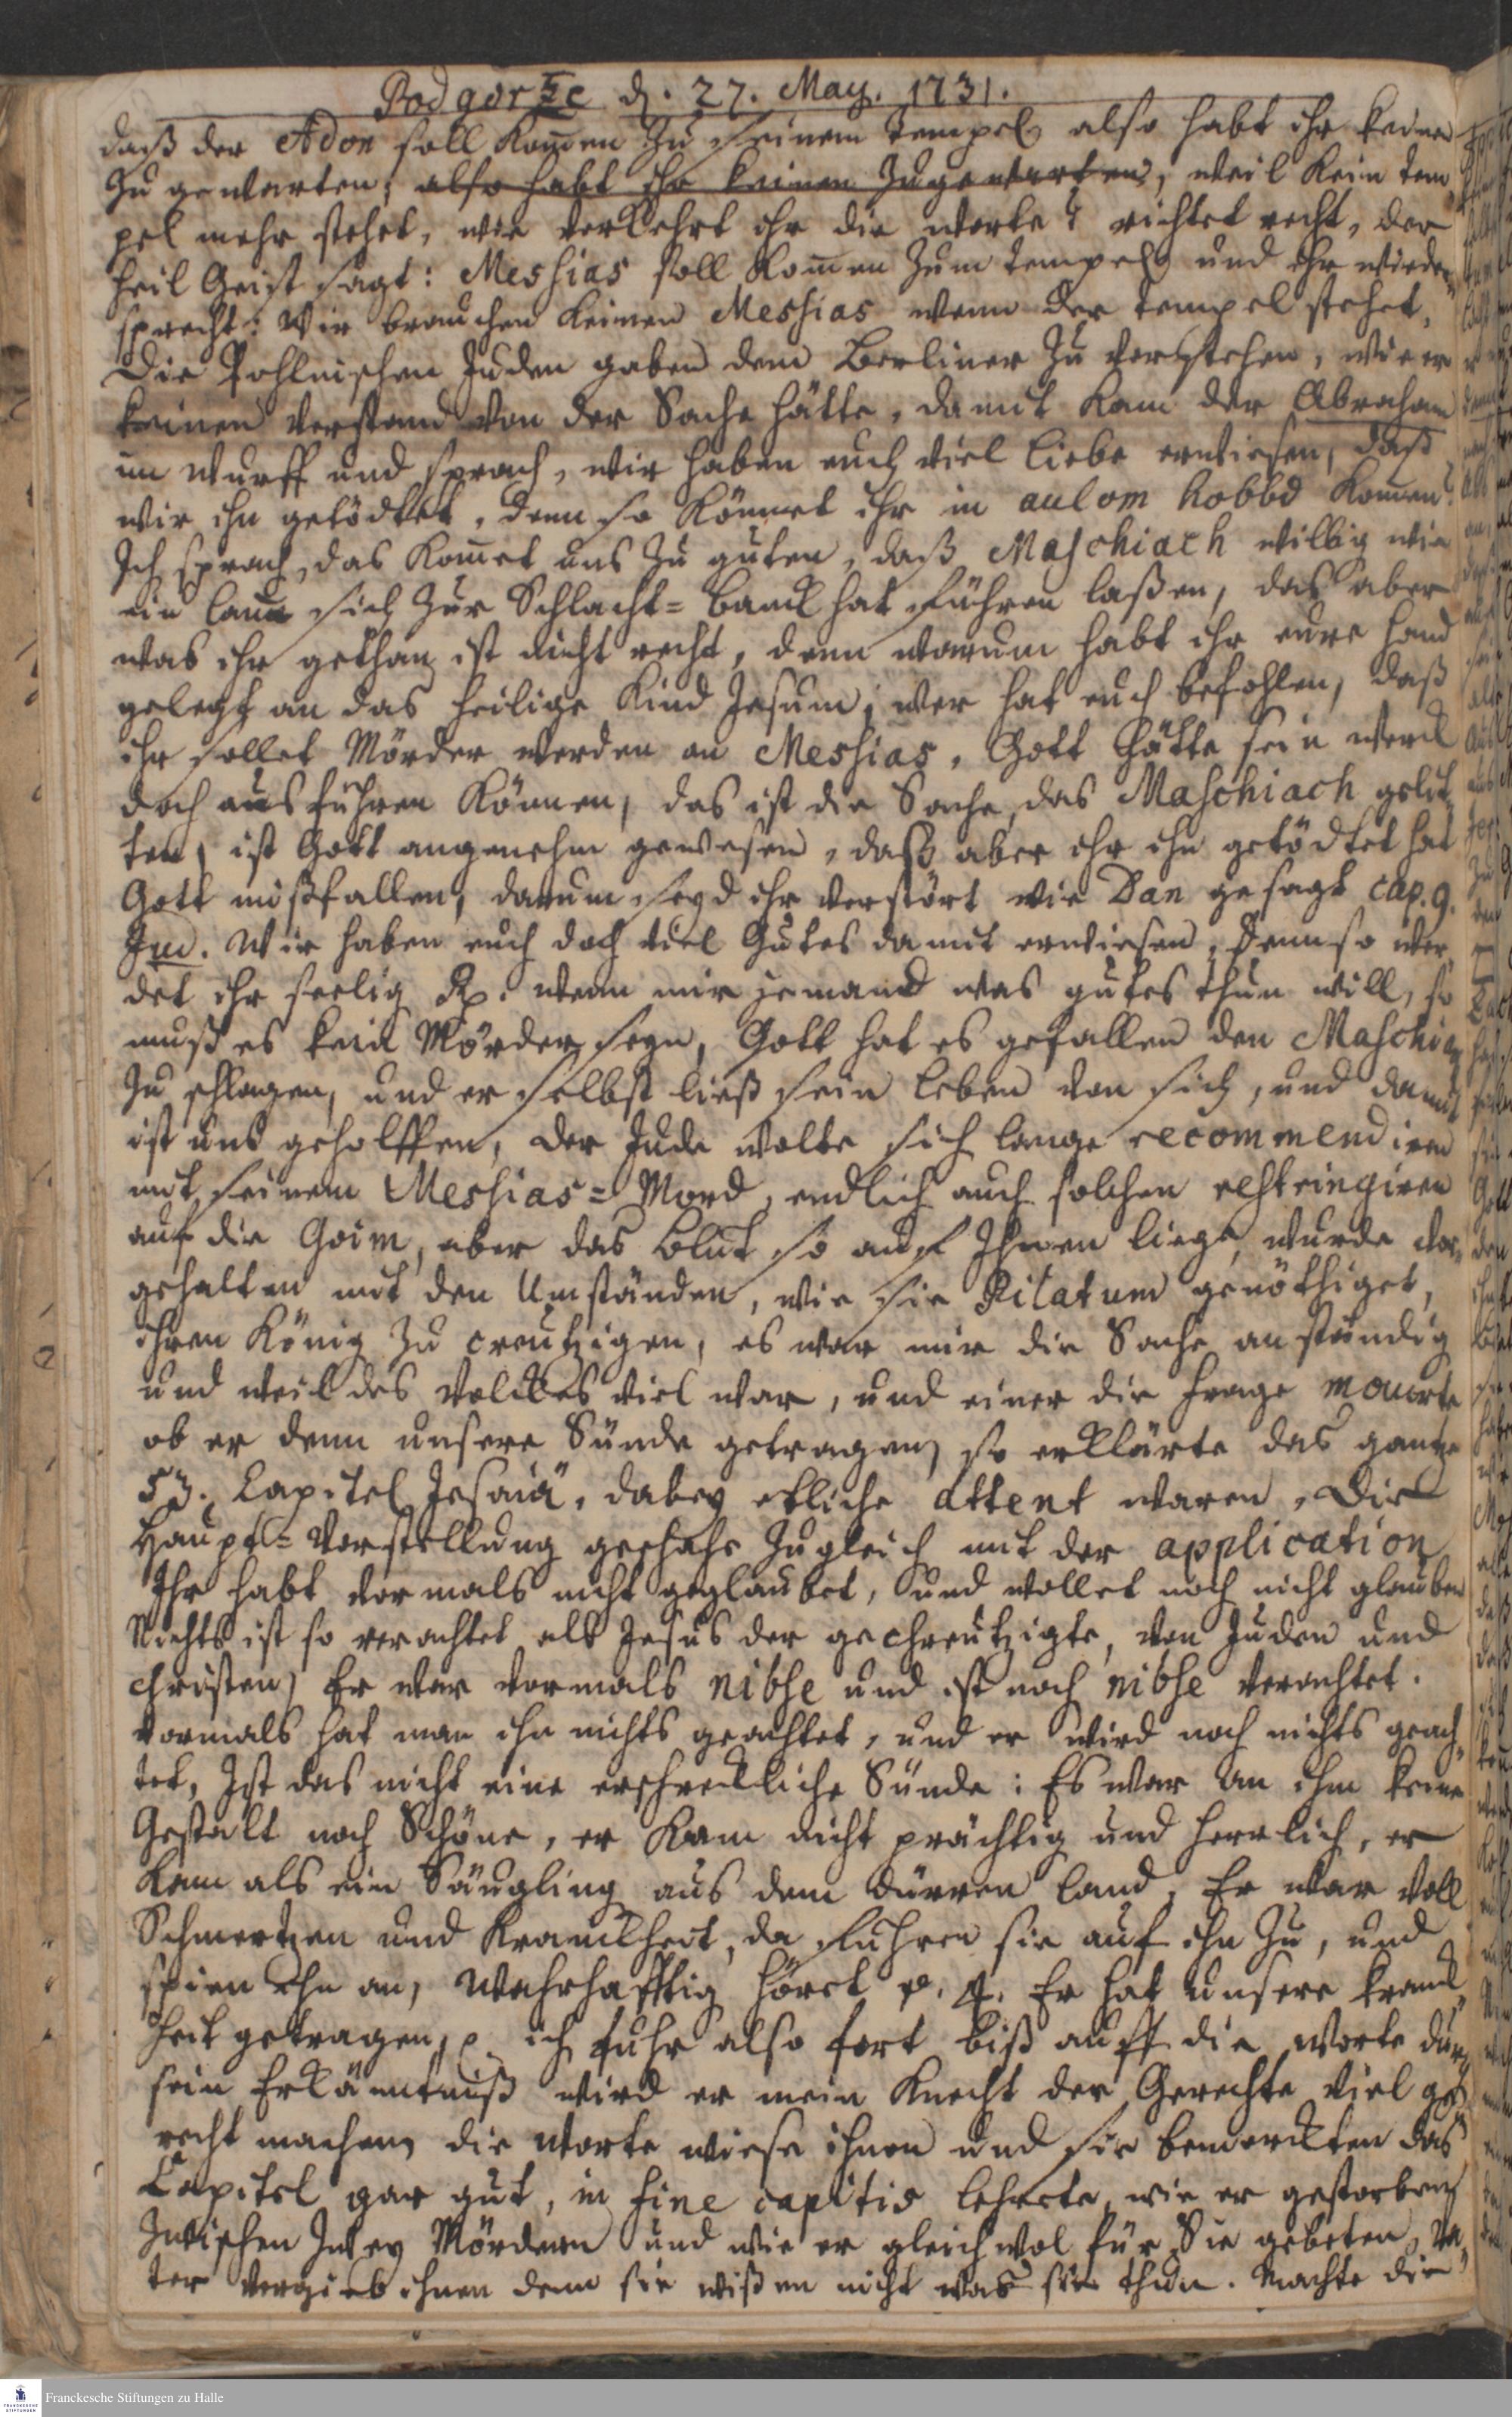 Podgorze d. 27. May. 1731.
daß der Adon soll kom̄en zu seinem tempel, also habt ihr keinen
zu gewarten, also habt ihr keinen zugewarten, weil kein tem¬
pel mehr stehet, wie verkehrt ihr die worte? richtet recht, der
heil Geist sagt: Messias soll kom̄en zum tempel, und ihr wieder¬
sprecht: Wir brauchen keinen Messias wenn der tempel stehet,
Die Pohlnischen Juden gaben dem Berliner zu verstehen, wie er
keinen verstand von der Sache hätte, damit kam der Abraham
im Wurff und sprach, wir haben euch viel liebe erwiesen, daß
wir ihn getödtet, denn so könnet ihr in aulom hobbo kom̄en.
Ich sprach, das kom̄et uns zu guten, daß Maschiach willig wie
ein lam̄ sich zur Schlacht=banck hat führen laßen, das aber
was ihr gethan, ist nicht recht, denn warum habt ihr eure hand
gelegt an das heilige Kind Jesum, wer hat euch befohlen, daß
ihr sollet Mörder werden an Messias, Gott hätte sein werck
doch ausführen können, das ist die Sache, das Maschiach gelit¬
ten, ist Gott angenehm gewesen, daß aber ihr ihn getödtet hat
Gott mißfallen, darum seyd ihr verstört wie Dan gesagt cap. 9.
Jud. Wir haben euch doch viel Gutes damit erwiesen, denn so wer¬
det ihr seelig Rp. wenn mir jemand was gutes thun will, so
muß es kein Mörder seyn, Gott hat es gefallen den Maschia
zu schlagen, und er selbst ließ sein leben von sich, und damit
ist uns geholffen, der Jude wolte sich lange recommendiren
mit seinem Messias=Mord, endlich auch solchen restringiren
auf die Goim, aber das blut so auf Ihnen liege, wurde vor¬
gehalten mit den Umständen, wie sie Pilatum genöthiget,
ihren König zu creutzigen, es war mir die Sache anständig
und weil des volckes viel war, und einer die frage mouvirte
ob er denn unsere Sünde getragen, so erklärte das gantze
53. Capitel Jesaiä, dabey etliche attent waren, Die
Haupt=Vorstellung geschahe zugleich mit der application
Ihr habt vormals nicht geglaubet, und wollet noch nicht glauben
Nichts ist so verachtet als Jesus der gechreutzigte, von Juden und
christen, Er war vormals nibse und ist noch nibse verachtet.
vormals hat man ihn nichts geachtet, und er wird noch nichts geach¬
tet, Ist das nicht eine erschreckliche Sünde: Es war an ihm keine
Gestalt noch Schöne, er kam nicht prächtig und herrlich, er
kam als ein Säugling aus dem dürren land, Er war voll
Schmertzen und Kranckheit, da fuhren sie auf ihn zu, und
spien ihn an, Wahrhafftig höret v. 4. Er hat unsere kranck¬
heit getragen, ich fuhr also fort biß auff die worte durch
sein Erkäntniß wird er mein Knecht der Gerechte viel ge¬
recht machen, die worte wiese ihnen und sie bemerckten das
Capitel gar gut, in fine capitis lehrete, wie er gestorben
zwischen zwey Mördern und wie er gleichwol für Sie gebeten, Va¬
ter vergieb ihnen denn sie wißen nicht was sie thun. Machte die
Franckesche Stiftungen zu Halle